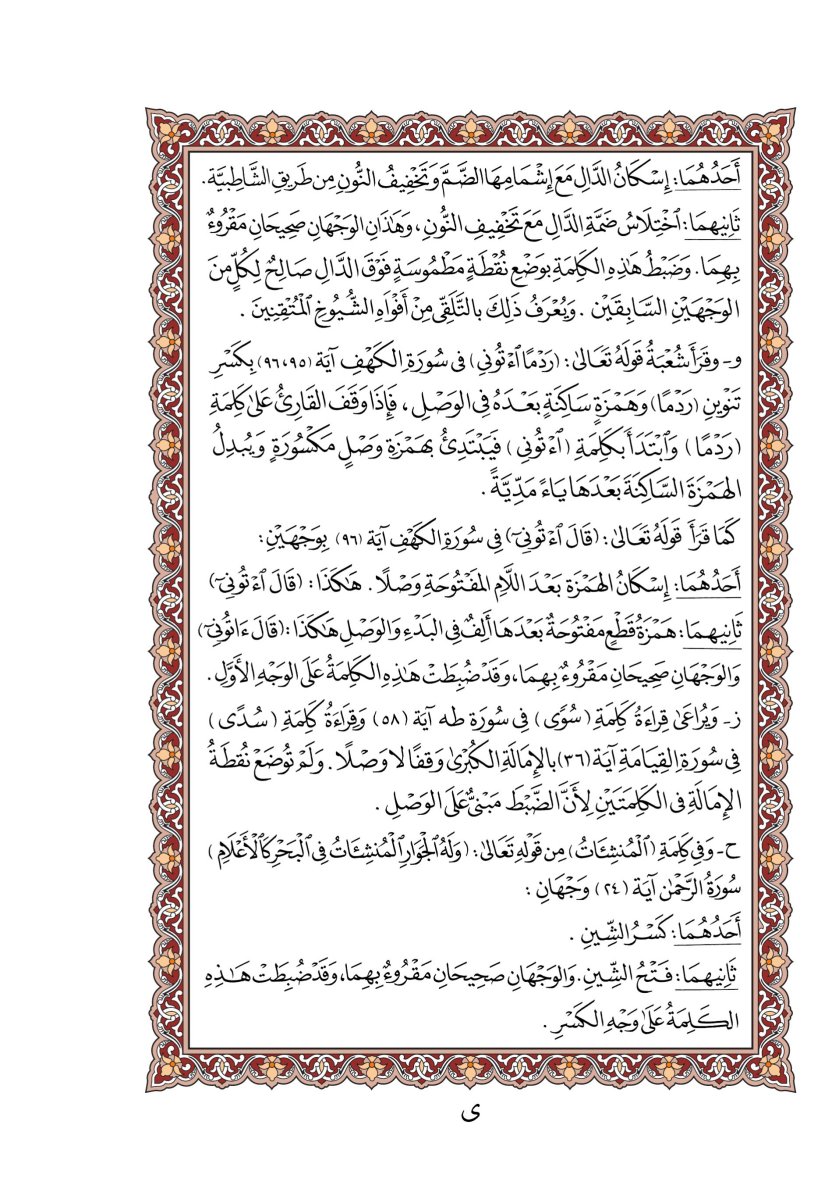 أَحَدُهُمَا: إِسْكَانُ الدَّالِ مَعَ إِشْمَامِهَا الضَّمَّ وَتَخْفِيفُ النُّونِ مِن طَرِيقِ الشَّاطِبِيَّة.
ثَانِيهِمَا: ٱخْتِلَاسُ ضَمَّةِ الدَّالِ مَعَ تَخْفِيفِ النُّونِ، وَهَٰذَانِ الوَجْهَانِ صَحِيحَانِ مَقْرُوءٌ
بِهِمَا. وَضَبْطُ هَٰذِهِ الكَلِمَةِ بِوَضْعِ نُقْطَةٍ مَطْمُوسَةٍ فَوْقَ الدَّالِ صَالِحٌ لِكُلٍّ مِنَ
الوَجْهَيْنِ السَّابِقَيْنِ. وَيُعْرَفُ ذَلِكَ بالتَّلَقِّى مِنْ أَفْوَاهِ الشُّيُوخِ ٱلْمُتْقِنِينَ.
و- وقَرَأَ شُعْبَةُ قَوْلَهُ تَعَالَىٰ: (رَدْمًا ٱءْتُونِي) فى سُورَةِ الكَهْفِ آيَة (٩٥، ٩٦) بِكَسْرِ
تَنْوِينِ (رَدْمًا) وَهَمْزَةٍ سَاكِنَةٍ بَعْدَهُ فِى الوَصْلِ، فَإِذَا وَقَفَ القَارِئُ عَلَىٰ كَلِمَةِ
(رَدْمًا) وَٱبْتَدَأَ بكَلِمَةِ (ٱءْتُونِي) فَيَبْتَدِئُ بهَمْزَةِ وَصْلٍ مَكْسُورَةٍ وَيُبدِلُ
الهَمْزَةَ السَّاكِنَةَ بَعْدَهَا يَاءً مَدِّيَّةً.
كَمَا قَرَأَ قَوْلَهُ تَعَالَىٰ: (قَالَ ٱءْتُونِيٓ) فِى سُورَةِ الكَهْفِ آيَة (٩٦) بِوَجْهَيْنِ:
أَحَدُهُمَا: إِسْكَانُ الهَمْزَةِ بَعْدَ اللَّامِ المَفْتُوحَةِ وَصْلًا. هَٰكَذَا: (قَالَ ٱءْتُونِيٓ)
ثَانِيهِمَا: هَمْزَةُ قَطْعٍ مَفْتُوحَةٌ بَعْدَهَا أَلِفٌ فِى البَدْءِ وَالوَصْلِ هَٰكَذَا: (قَالَ ءَاتُونِيٓ)
وَالوَجْهَانِ صَحِيحَانِ مَقْرُوءٌ بِهِمَا، وَقَدْ ضُبِطَتْ هَٰذِهِ الكَلِمَةُ عَلَى الوَجْهِ الأَوَّلِ.
ز- وَيُرَاعَىٰ قِرَاءَةُ كَلِمَةِ (سُوًى) فِى سُورَة طه آيَة (٥٨) وَقِرَاءَةُ كَلِمَةِ (سُدًى)
فِى سُورَةِ القِيَامَةِ آيَة (٣٦) بالإِمَالَةِ الكُبْرَىٰ وَقفًا لا وَصْلًا. وَلَمْ تُوضَعْ نُقْطَةُ
الإِمَالَةِ فى الكَلِمَتَيْنِ لِأَنَّ الضَّبْطَ مَبْنِىٌّ عَلَى الوَصْلِ.
ح- وَفِى كَلِمَةِ (ٱلْمُنشِئَاتُ) مِن قَوْلِهِ تَعَالَىٰ: (وَلَهُ ٱلْجَوَارِ ٱلْمُنشِئَاتُ فِى ٱلْبَحْرِ كَٱلْأَعْلَامِ)
سُورَةُ الرَّحْمَٰن آيَة (٢٤) وَجْهَانِ:
أَحَدُهُمَا: كَسْرُ الشِّينِ.
ثَانِيهِمَا: فَتْحُ الشِّينِ. وَالوَجْهَانِ صَحِيحَانِ مَقْرُوءٌ بِهِمَا، وَقَدْ ضُبِطَتْ هَٰذِهِ
الكَلِمَةُ عَلَىٰ وَجْهِ الكَسْرِ.
ى